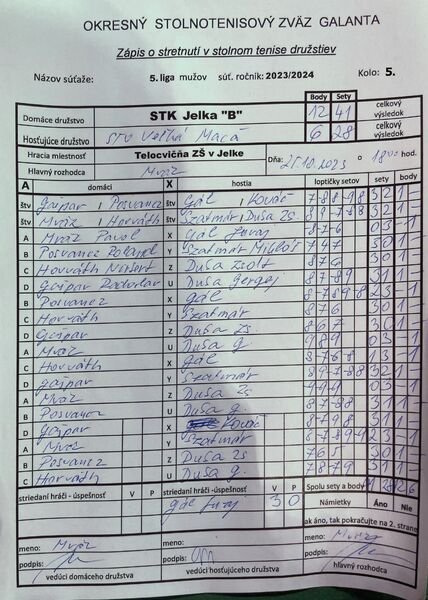 OKRESNÝ STOLNOTENISOVÝ ZVÄZ GALANTA
Zápis o stretnutí v stolnom tenise družstiev
Názov súťaže: 5. liga mužov súť. ročník: 2023/2024 Kolo: 5.
Body Sety
Domáce družstvo STK Jelka "B" 12 41 celkový výsledok
Hosťujúce družstvo STO Veľká Mača 6 28 celkový výsledok
Hracia miestnosť Telocvičňa ZŠ v Jelke Dňa: 10.2023 o 18 00 hod.
Hlavný rozhodca Mráz
A domáci X hostia loptičky setov sety body
štv Gašpar, Posvancz štv Gál, Kováč 32 1 -
štv Mráz, Horváth štv Szatmár, Duša Zs. 32 1 -
A Mráz Pavol X Gál Juraj 8 7 6 03 - 1
B Posvancz Y Szatmár Mikloš 7 4 7 30 1 -
C Horváth Norbert Z Duša Zsolt 8 7 6 30 1 -
D Gašpar Radoslav U Duša Gergej 8 7 8 9 31 1 -
B Posvancz X Gál 23 - 1
C Horváth Y Szatmár 8 7 6 30 1 -
D Gašpar Z Duša Zs. 8 6 7 30 1 -
A Mráz U Duša G. 9 8 9 03 - 1
C Horváth X Gál 13 - 1
D Gašpar Y Szatmár 32 1 -
A Mráz Z Duša Zs 03 - 1
B Posvancz U Duša G. 31 1 -
D Gašpar X Kováč 31 1 -
A Mráz Y Szatmár 23 - 1
B Posvancz Z Duša Zs. 7 6 5 30 1 -
C Horváth U Duša G. 7 8 7 9 31 1 -
striedaní hráči - úspešnosť V P striedaní hráči - úspešnosť V P Spolu sety a body 41 28 12 6
Gál Juraj 3 0 Námietky Áno Nie
ak áno, tak pokračujte na 2. strane
meno: Mráz meno: meno: Mráz
podpis: podpis: podpis:
vedúci domáceho družstva vedúci hosťujúceho družstva hlavný rozhodca